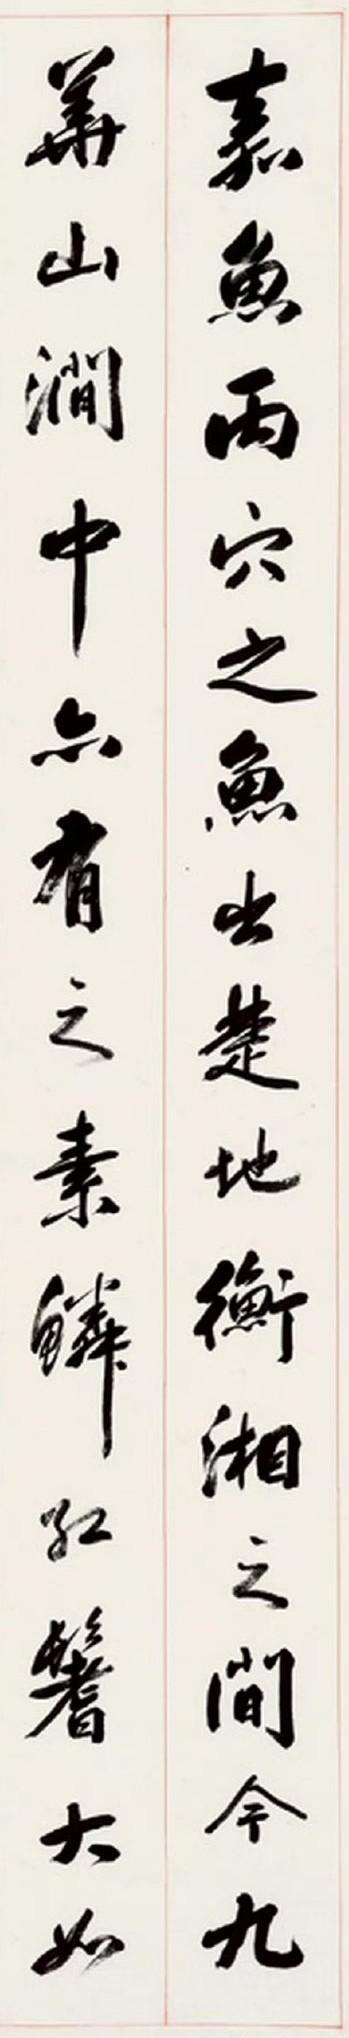 嘉魚丙穴之魚出楚地衡湘之間今九
華山澗中亦有之素鱗紅鬐大如